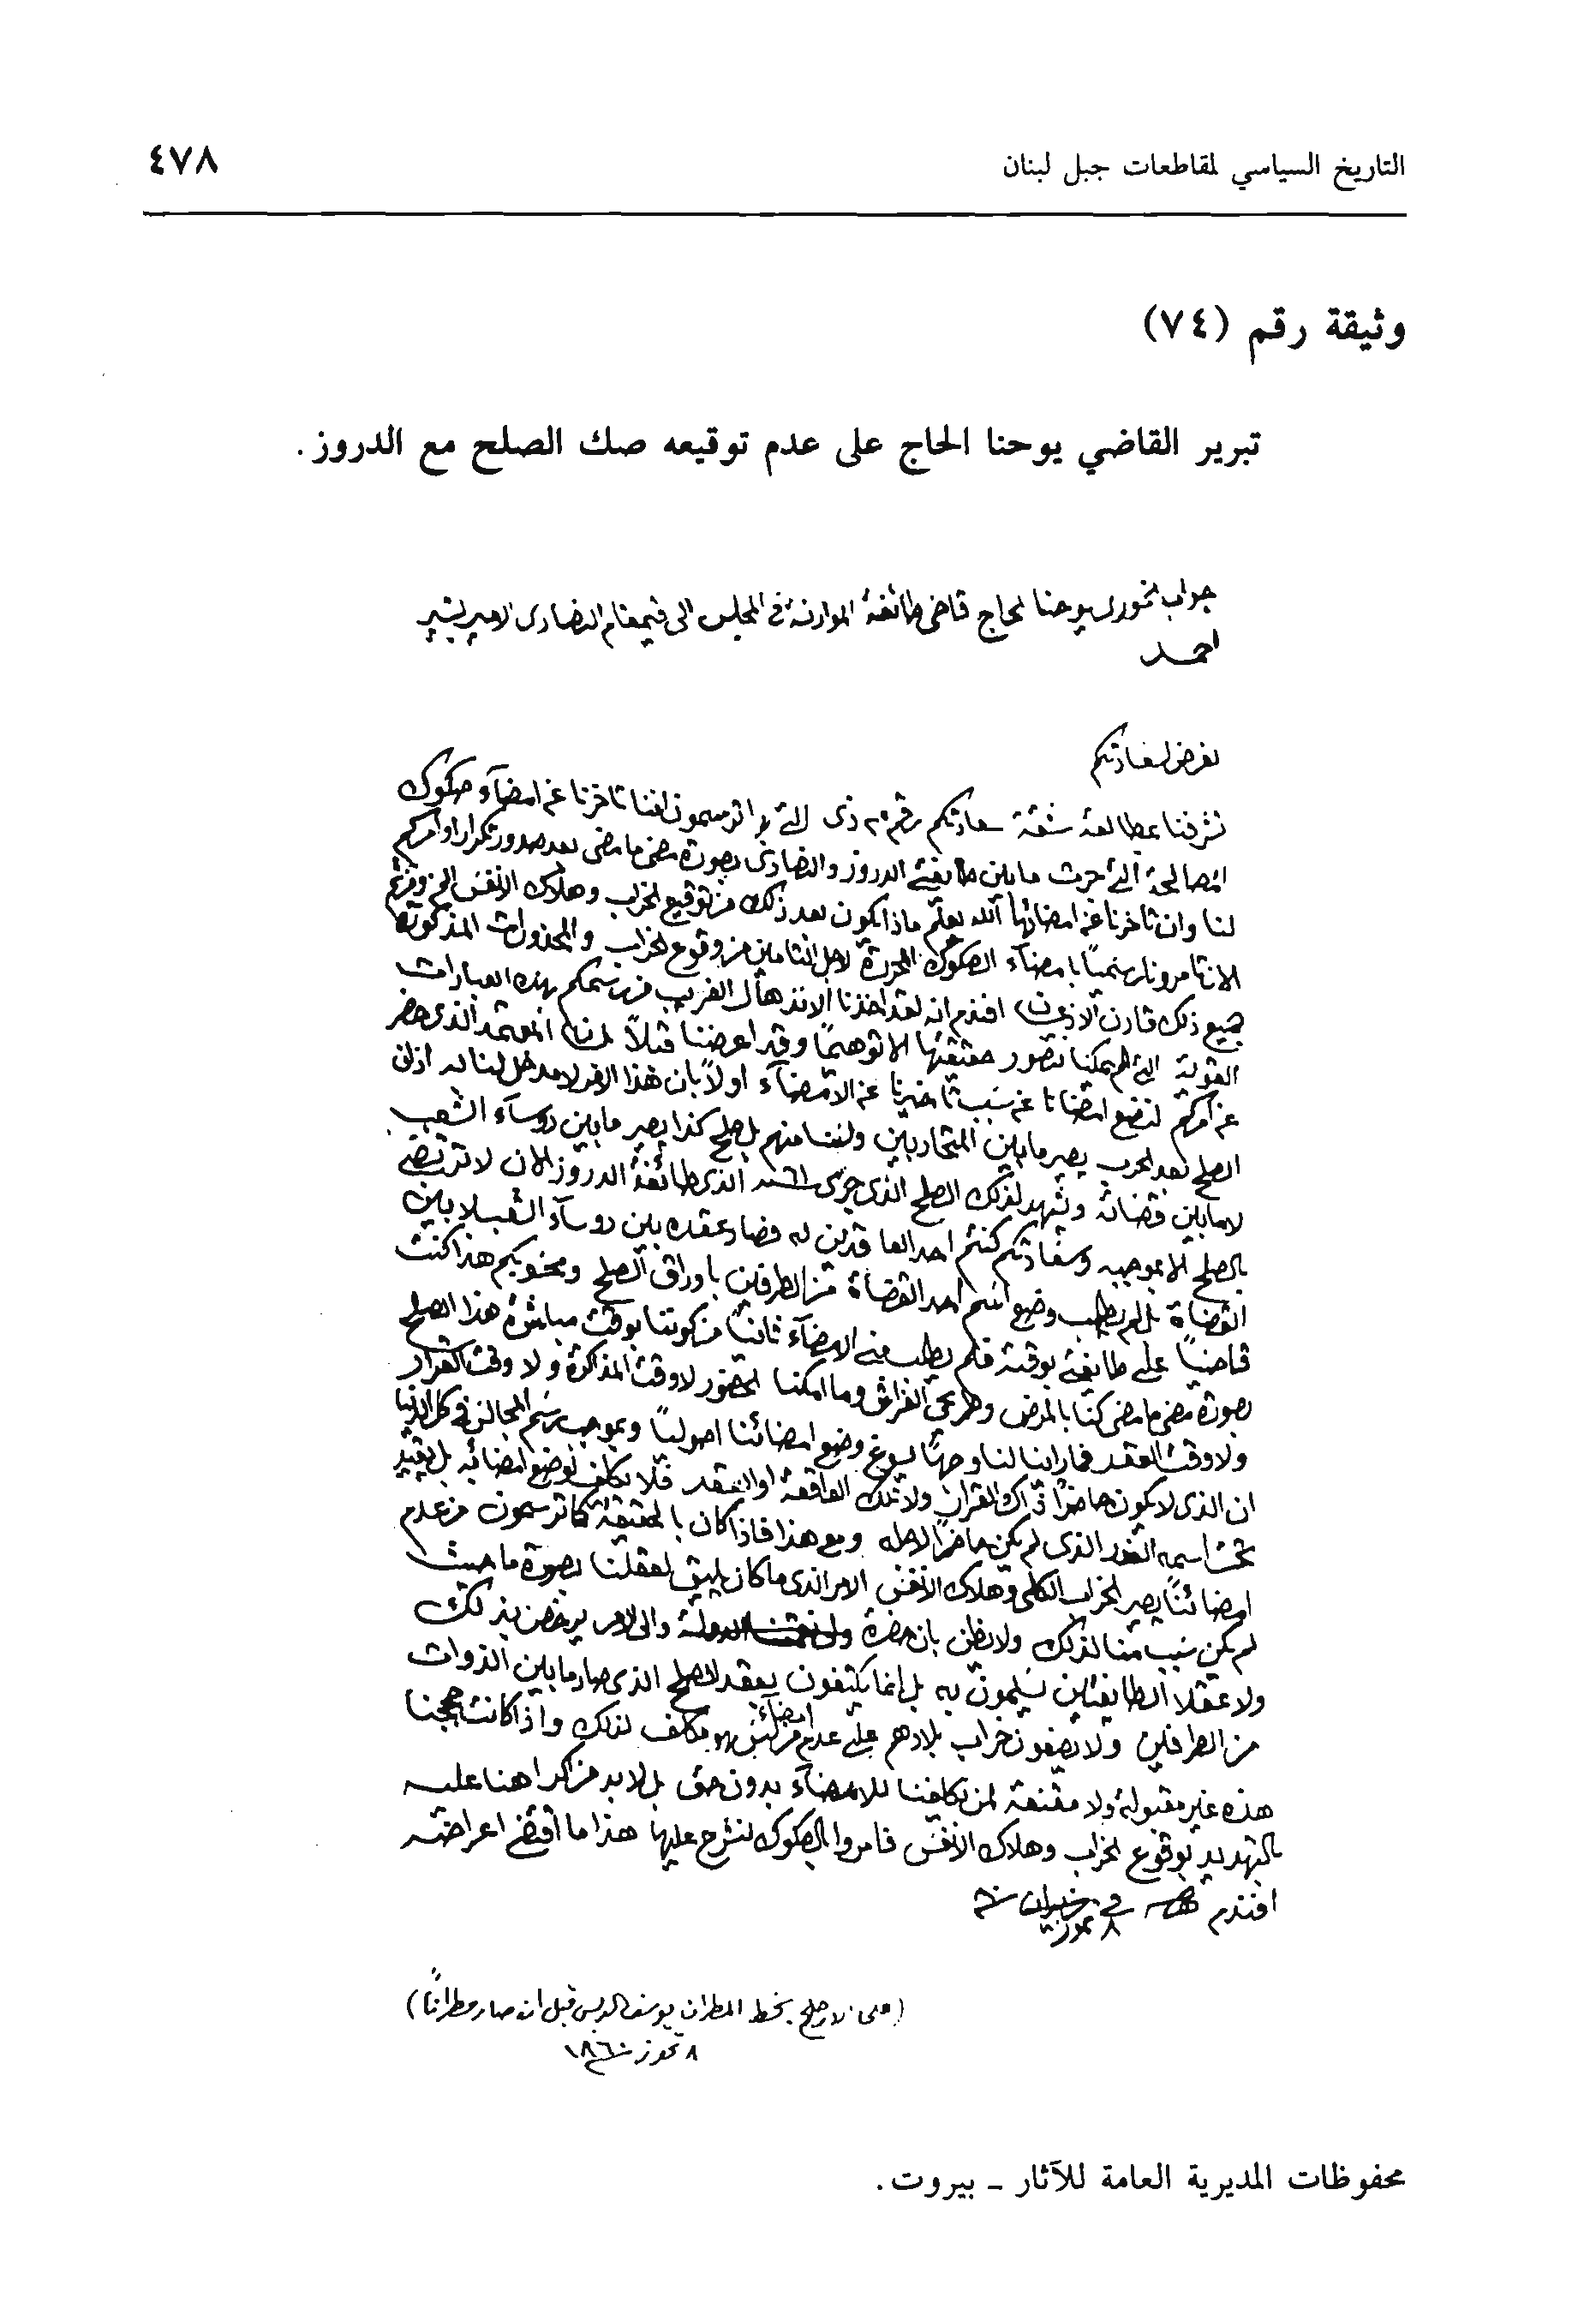 التاريخ السياسي لمقاطعات جبل لبنان
٤٧٨
وثيقة رقم (٧٤)
تبرير القاضي يوحنا الحاج على عدم توقيعه صك الصلح مع الدروز .
جواب الخوري يوحنا الحاج قاضي طائفة الموارنة في المجلس الى قيمقام النصارى الامير بشير
احمد
نعرض لسعادتكم
تشرفنا بمطالعة شقة سعادتكم رقم ٢٠ ذي التي بها ترسمون اننا تاخرنا عن امضآء صكوك
المصالحة التي جرت ما بين طايفتي الدروز والنصارى بصورة مضى ما مضى بعد صدور تكرار اوامركم
لنا وان تاخرنا عن امضائها الله يعلم ماذا يكون بعد ذلك من توقيع الخراب وهلاك الانفس
الان تامرونا بامضآء الصكوك المحررة لاجل التامين من وقوع الخراب والمحذورات المذكورة
جميع ذلك افندم انه لقد اخذنا الانذهال الغريب من رسمكم بهذه العبارات
القوية التي لم يمكنا تصور حقيقتها الا توهمًا وقد اعرضنا قبلاً المعتمد الذي حضر
عن امركم لنضع امضانا عن سبب تاخيرنا عن الامضآء اولاً بان هذا الامر لا مدخل لنا به اذ ان
الصلح بعد الحرب يصير ما بين المتحاربين ولسنا منهم بل صلح كذا يصير ما بين روسآء الشعب
لا ما بين قضاته ويشهد لذلك الصلح الذي جرى الذي طائفة الدروز الان لا ترتضي
بالصلح الا بموجبه وسعادتكم كنتم احد العاقدين له فصار عقده بين روسآء الشعب لا بين
القضاة بل لم يطلب وضع اسم احد القضاة من الطرفين باوراق الصلح ومحسوبكم هذا كنت
قاضياً على طايفتي بوقته فلم يطلب مني الامضآء ثانياً من كوننا بوقت مباشرة هذا الصلح
بصورة مضى ما مضى كنا بالمرض وطريحي الفراش وما امكنا الحضور لا وقت المذاكرة ولا وقت القرار
ولا وقت العقد فما راينا لنا وجهًا يسوغ وضع امضائنا اصولياً وبموجب رسم المجالس في كل الدنيا
ان الذي لا يكون حاضرًا ذاك القرار ولا تلك الواقعة او العقد فلا يكلف لوضع امضائه بل يقيد
تحت اسمه العذر الذي لم يكن حاضرًا لاجله ومع هذا فاذا كان بالحقيقة كما ترسمون من عدم
امضائنا يصير الخراب الكلي وهلاك الانفس الامر الذي ما كان يليق لعقلنا بصورة ما حيث
لم يكن سبب منا لذلك ولا يظن بان حضرة والى الامر يرخص بذلك
ولا عقلا الطايفتين يسلمون به بل انما يكتفون بعقد الصلح الذي صار ما بين الذوات
من الطرفين ولا يضعون خراب بلادهم على عدم امضآء من ليس هو مكلف لذلك واذا كانت حججنا
هذه غير مقبولة ولا مقنعة لمن يكلفنا للامضآء بدون حق بل لا بد من اكراهنا عليه
بالتهديد بوقوع الخراب وهلاك الانفس فامروا بالصكوك لنشرح عليها هذا ما اقتضى اعراضه
افندم في حزيران
٨ تموز
(على الارجح بخط المطران يوسف الدبس قبل ان صار مطرانًا)
٨ تموز سنة ١٨٦٠
محفوظات المديرية العامة للآثار - بيروت .